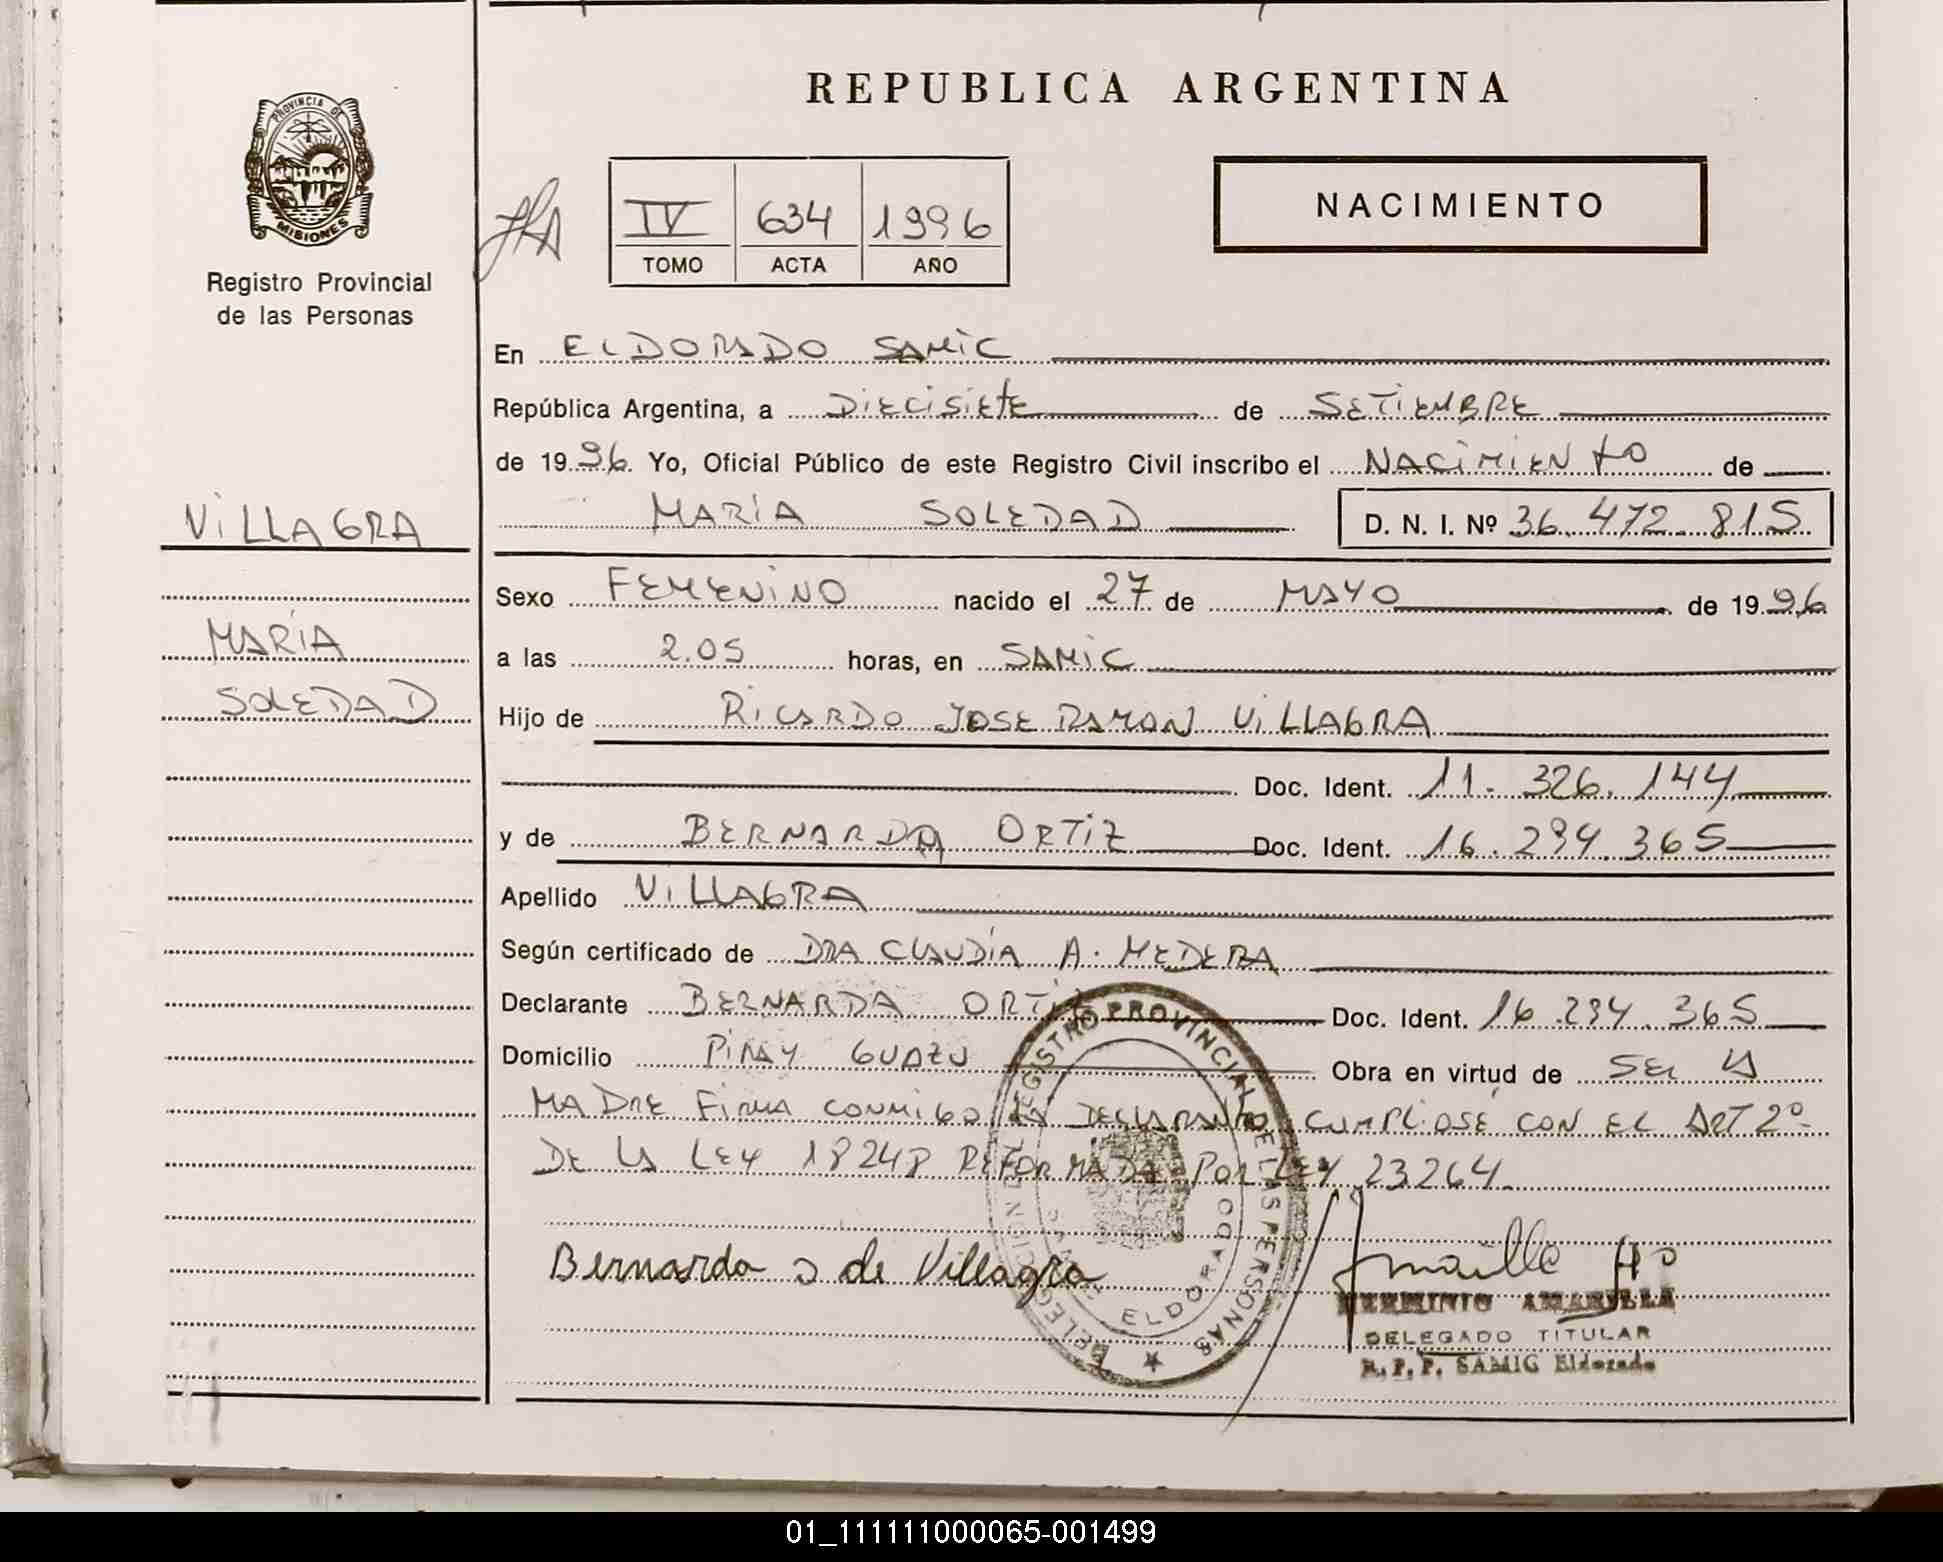 REPUBLICA ARGENTINA
PROVINCIA DE
MISIONES
Registro Provincial
de las Personas
IV 634 1996
TOMO ACTA AÑO
NACIMIENTO
En ELDORADO SAMIC
República Argentina, a DIECISIETE de SETIEMBRE
de 1996. Yo, Oficial Público de este Registro Civil inscribo el NACIMIENTO de
VILLAGRA
MARÍA SOLEDAD D. N. I. Nº 36.472.815
Sexo FEMENINO nacido el 27 de MAYO de 1996
MARÍA
a las 2.05 horas, en SAMIC
SOLEDAD
Hijo de RICARDO JOSE RAMON VILLAGRA
Doc. Ident. 11.326.144
y de BERNARDA ORTIZ Doc. Ident. 16.294.365
Apellido VILLAGRA
Según certificado de DRA CLAUDIA A. MEDERA
Declarante BERNARDA ORTIZ Doc. Ident. 16.294.365
Domicilio PIRAY GUAZU Obra en virtud de SER LA
MADRE FIRMA CONMIGO LA DECLARANTE CUMPLIOSE CON EL ART 2º
DE LA LEY 18248 REFORMADA POR LEY 23264.
Bernarda O de Villagra
REGISTRO PROVINCIAL DE LAS PERSONAS
DELEGACION
ELDORADO
HERMINIO AMARILLA
DELEGADO TITULAR
R. P. P. SAMIC Eldorado
01_111111000065-001499